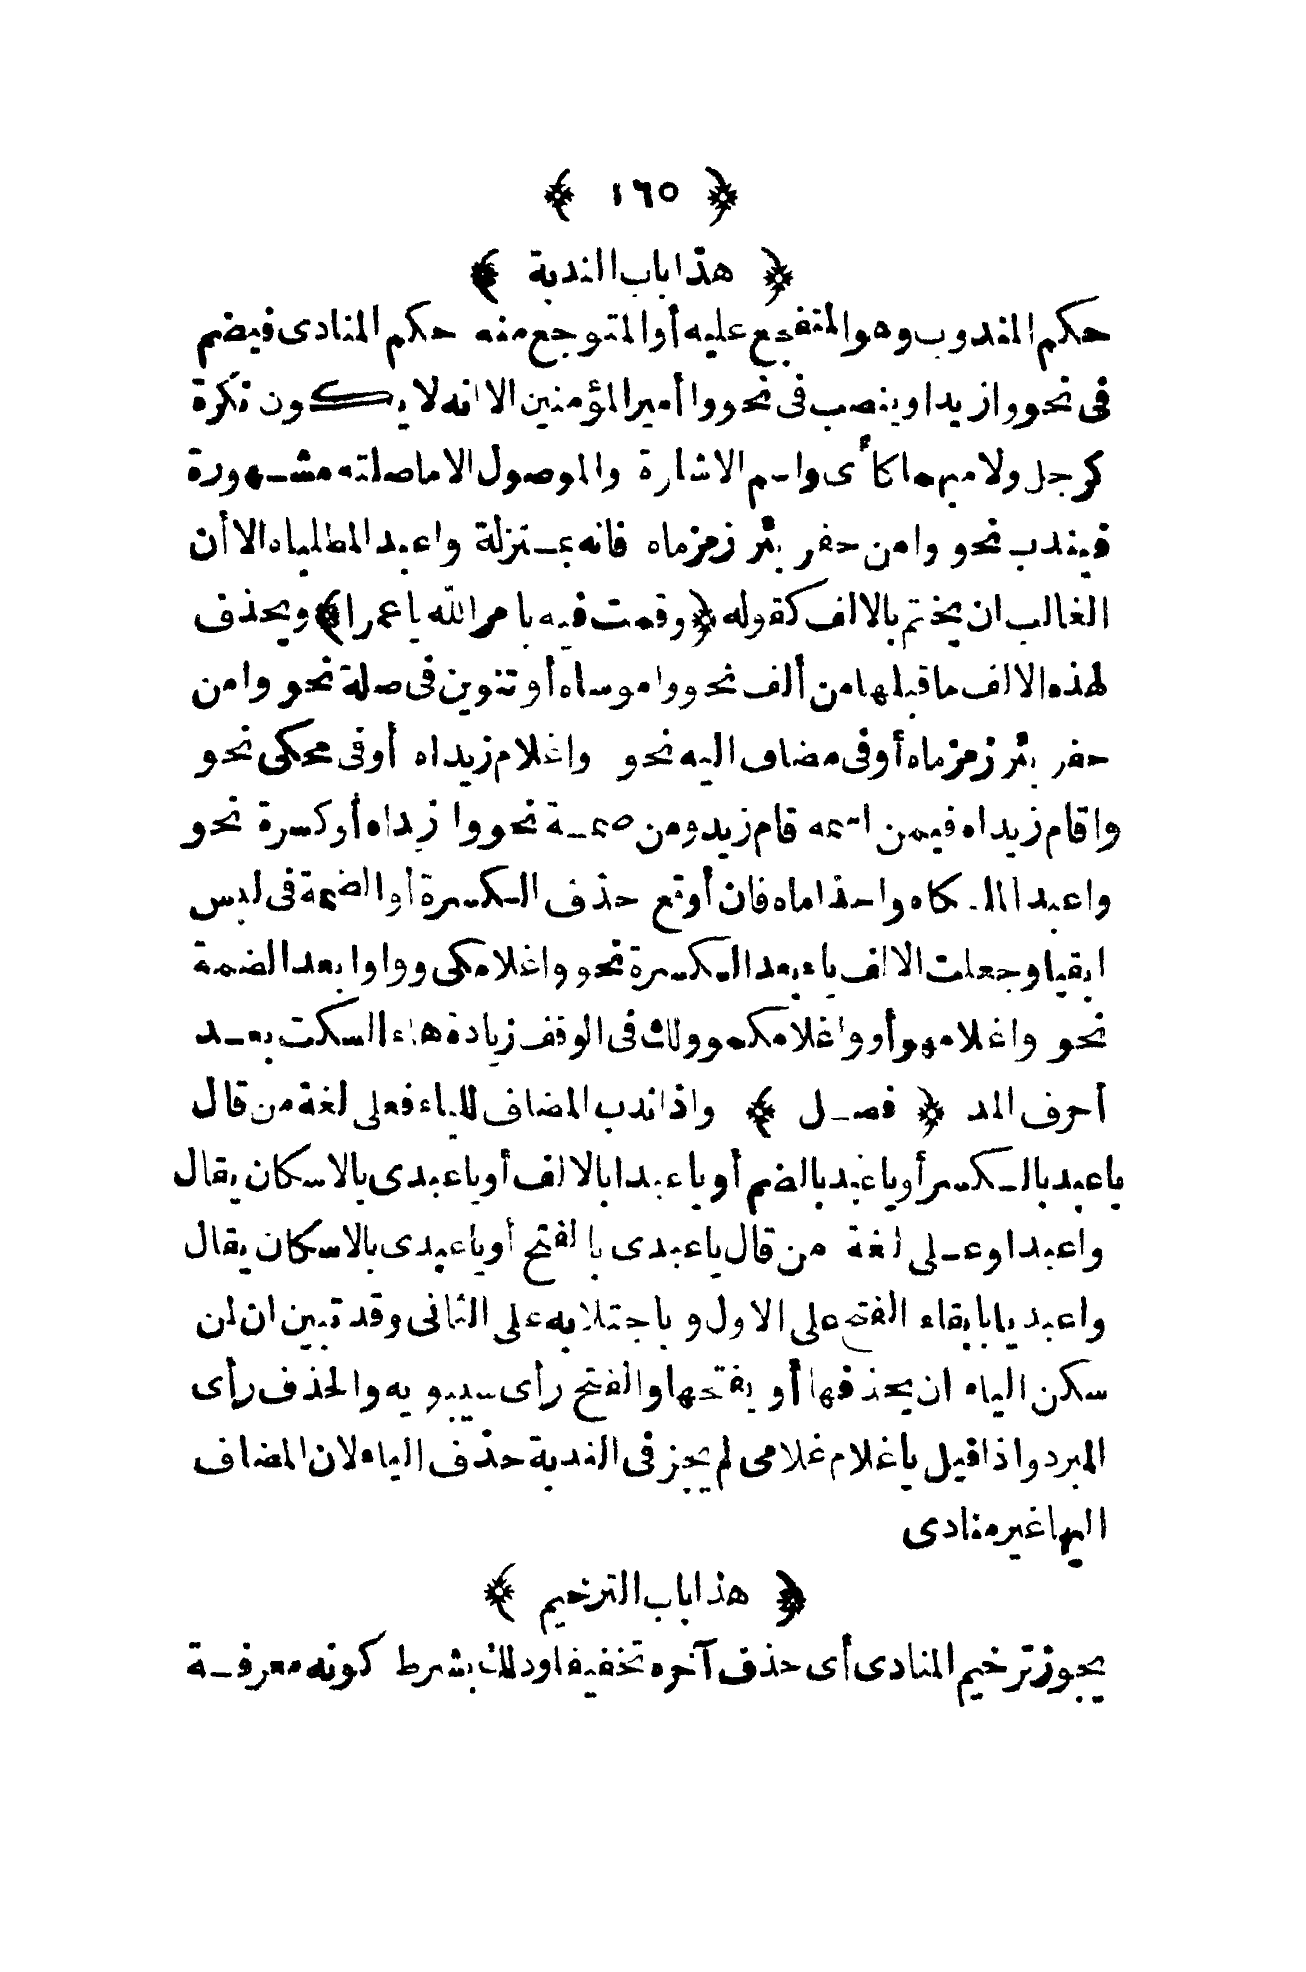 ﴿ ١٦٥ ﴾
﴿ هذا باب الندبة ﴾
حكم المندوب وهو المتفجع عليه أو المتوجع منه حكم المنادى فيضم
فى نحو وازيدا وينصب فى نحو وا أمير المؤمنين الا انه لا يكون نكرة
كرجل ولا مبهما كأى واسم الاشارة والموصول الا ما صلته مشهورة
فيندب نحو وامن حفر بئر زمزماه فانه بمنزلة واعبد المطلباه الا أن
الغالب ان يختم بالالف كقوله ﴿وقمت فيه بامر الله ياعمرا﴾ ويحذف
لهذه الالف ما قبلها من ألف نحو وا موساه أو تنوين فى صلة نحو وامن
حفر بئر زمزماه أو فى مضاف اليه نحو واغلام زيداه أو فى محكى نحو
واقام زيداه فيمن اسمه قام زيد ومن ضمة نحو وا زيداه أو كسرة نحو
واعبد الملكاه واحذاماه فان أوقع حذف الكسرة أو الضمة فى لبس
ابقيا وجعلت الالف ياء بعد الكسرة نحو واغلامكى وواوا بعد الضمة
نحو واغلامهو أو واغلامكمو ولك فى الوقف زيادة هاء السكت بعد
أحرف المد ﴿ فصل ﴾ واذا ندب المضاف للياء فعلى لغة من قال
ياعبد بالكسر أو ياعبد بالضم أو ياعبدا بالالف أو ياعبدى بالاسكان يقال
واعبدا وعلى لغة من قال ياعبدى بالفتح أو ياعبدى بالاسكان يقال
واعبديا بابقاء الفتح على الاول و باجتلابه على الثانى وقد تبين ان لمن
سكن الياء ان يحذفها أو يفتحها والفتح رأى سيبويه والحذف رأى
المبرد واذا قيل ياغلام غلامى لم يجز فى الندبة حذف الياء لان المضاف
اليها غير منادى
﴿ هذا باب الترخيم ﴾
يجوز ترخيم المنادى أى حذف آخره تخفيفا وذلك بشرط كونه معرفة